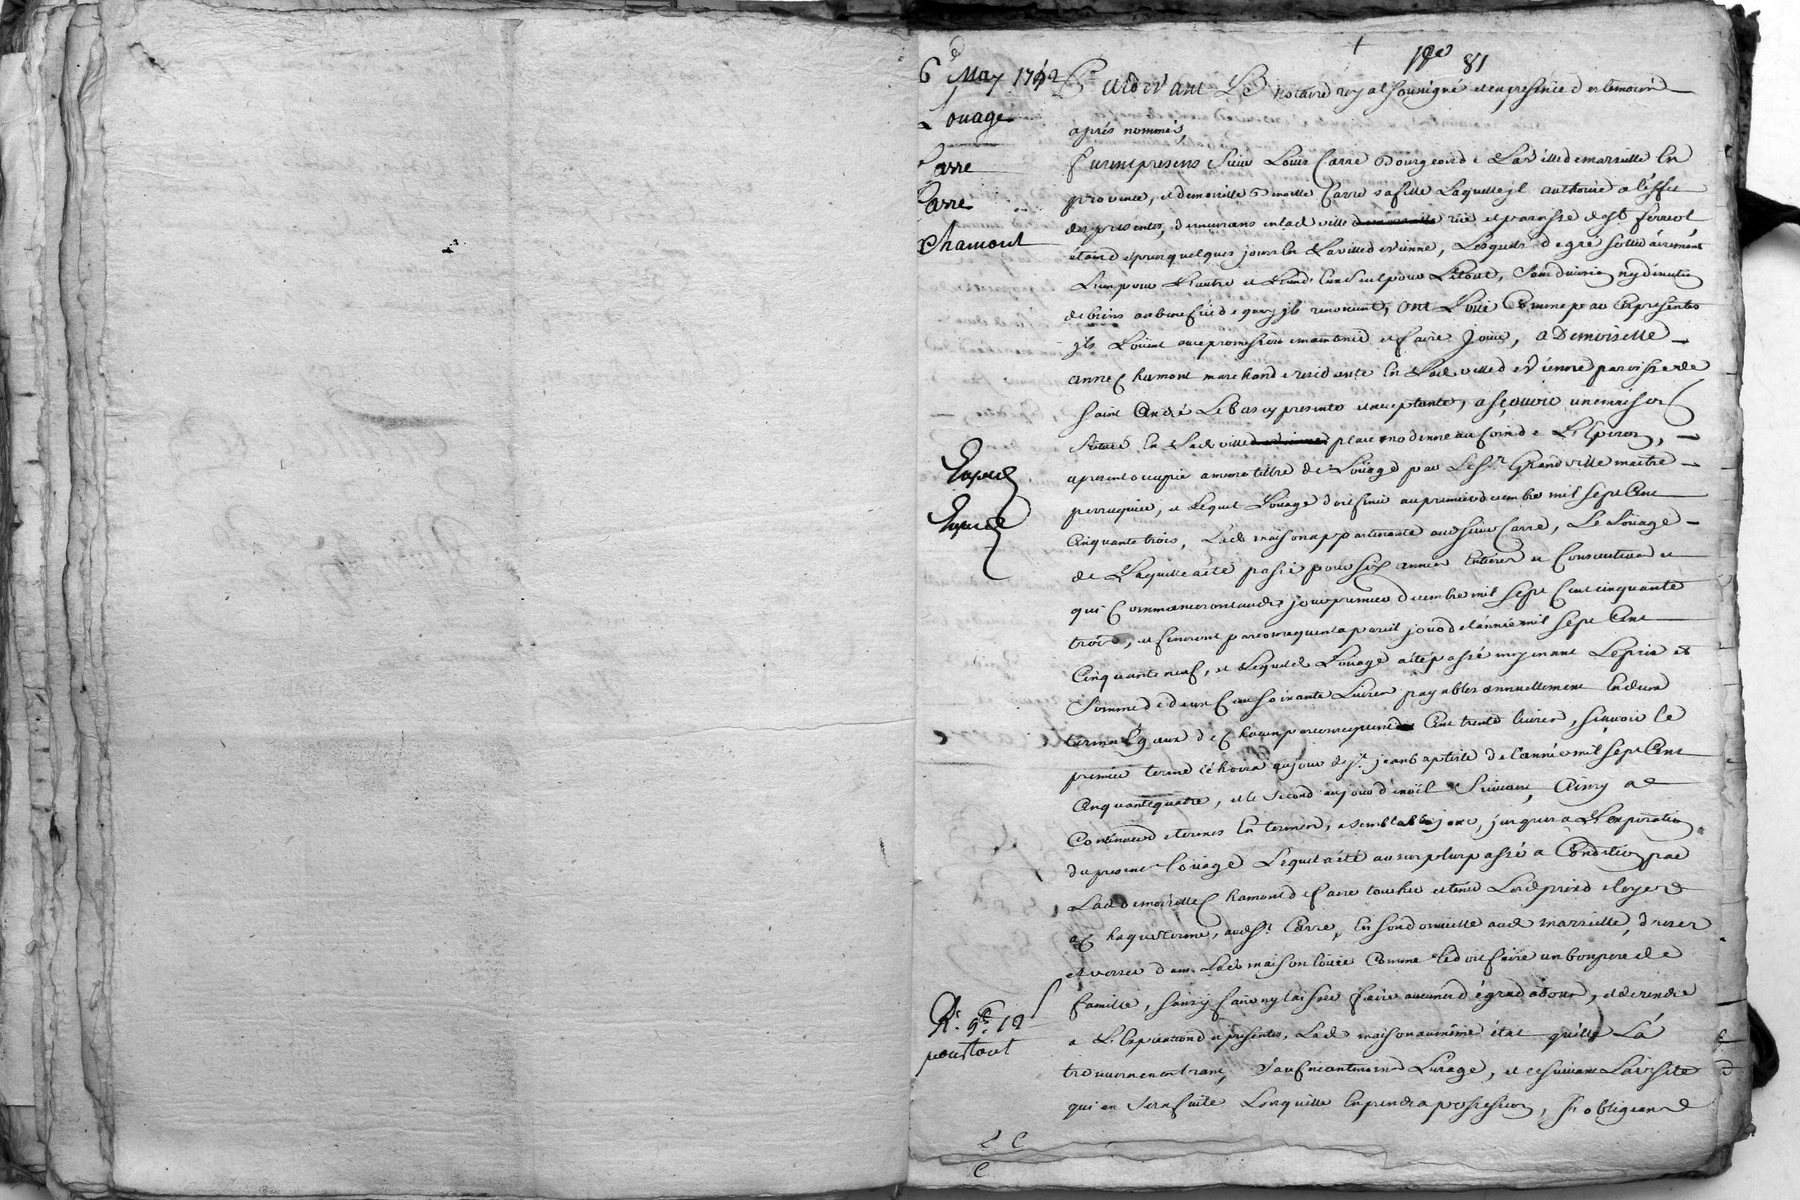 81
6e May 1752
Louage
Carre
Carre
Chamont
Pardevant Le notaire royal soussigné et en presence des temoins
après nommés,
furent presens Sieur Louis Carre Bourgeois de La ville de marseille En
provence, et demoiselle Carre sa fille Laquelle jl authorise a l'effet
des presentes, demeurans en lad ville rüe et paroisse de St ferreol
étant depuis quelques jours En La ville de vienne, Lesquels de gré solidairement
L'un pour L'autre et L'un d'eux seul pour Le tout, sans division ny discution
de biens au benefice de quoy jls renoncent, ont Loüé Comme par ces presentes
jls Loüent avec promesse de maintenir et faire Joüir, a Demoiselle
anne Chamont marchande residante En Lad ville de vienne paroisse de
saint André Le bas cy presente et acceptante, a sçavoir une maison
Située En Lad ville place modenne au coin de L'Eperon,
apresent occupée a meme tiltre de Loüage par Le Sr. Grandville maitre
perruquier, et Lequel Loüage doit finir au premier decembre mil sept Cent
Cinquante trois, Lade maison appartenante aud sieur Carre, Le Loüage
de Laquelle a été passé pour six années Entieres et Consecutives et
qui Commanceront audit jour premier decembre mil sept Cent cinquante
trois, et finiront par consequent a pareil jour de l'année mil sept Cent
Cinquante neuf, et Lequel Loüage a été passé moyenant Le prix et
Somme de deux Cent soixante Livres payables annuellement En deux
termes Egaux de Chacun par consequent Cent trente livres, sçavoir le
premier terme échoira au jour de St. jean baptiste de l'année mil sept Cent
Cinquante quatre, et le second au jour de noël Suivant, Ainsy a
Continuer de termes En termes, a semblable jour, jusques a L'expiration
du present Loüage Lequel a été au surplus passé a Condition par
Lade demoiselle Chamont de faire toucher et tenir Led prix de loyer
a Chaque terme, aud Sr. Carre, En son domicille aud marseille, d'user
et verser dans Lade maison loüée Comme le doit faire un bon pere de
famille, sans y faire ny laisser faire aucunes dégradations, et de rendre
a L'Expiration des presentes, Lade maison au même état qu'elle La
trouvera en entrant, sauf Neantmoins L'usage, et ce suivant La visite
qui en sera faite Lorsqu'elle En prendra possession, s'obligeant
R. 9s. 12
pour tout
L C
C